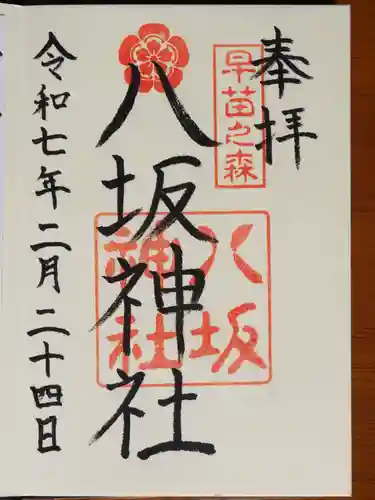 奉拝
早苗之森
八坂神社
八坂
神社
令和七年二月二十四日